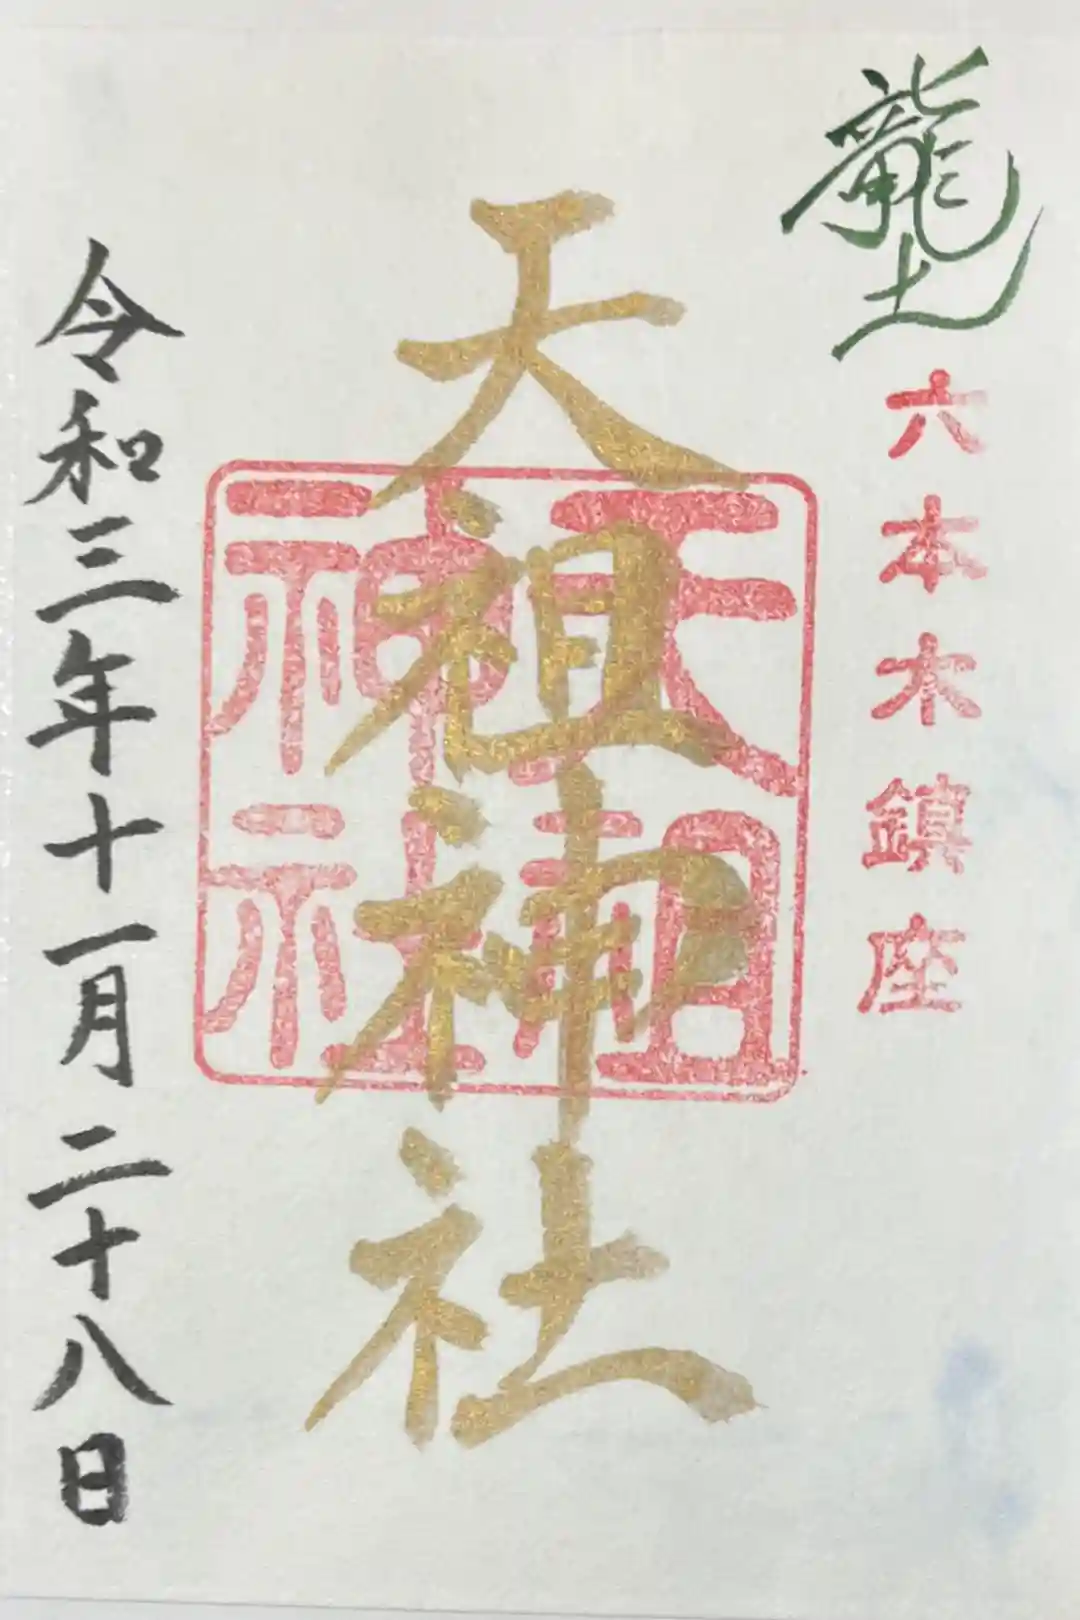 龍土
六本木鎮座
天祖神社
天祖
神社
令和三年十一月二十八日